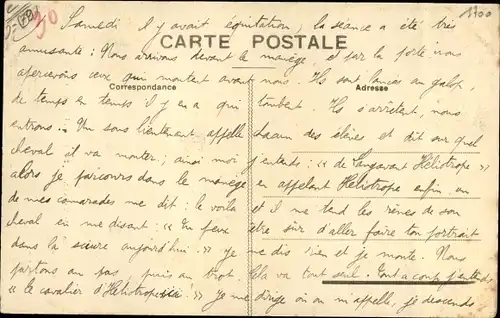 50
1300
Samedi il y avait équitation, la séance a été très
CARTE POSTALE
amusante : Nous arrivons devant le manège, et par la porte nous
apercevons ceux qui montent avant nous. Ils sont lancés au galop,
Correspondance
Adresse
de temps en temps il y en a qui tombent. Ils s'arrêtent, nous
entrons. Un sous lieutenant appelle chacun des élèves et dit sur quel
cheval il va monter ; ainsi moi j'entends : « de Héliotrope »
alors je parcours dans le manège en appelant Héliotrope enfin un
de mes camarades me dit : le voilà et je me tends les rênes de son
cheval en me disant : « Tu peux être sûr d'aller faire ton portrait
dans la sciure aujourd'hui. » Je me dis rien et je monte. Nous
partons au pas, puis au trot. Cela va tout seul. Tout à coup j'entends,
« le cavalier d'Héliotrope ici ! » Je me dirige où on m'appelle, je descends